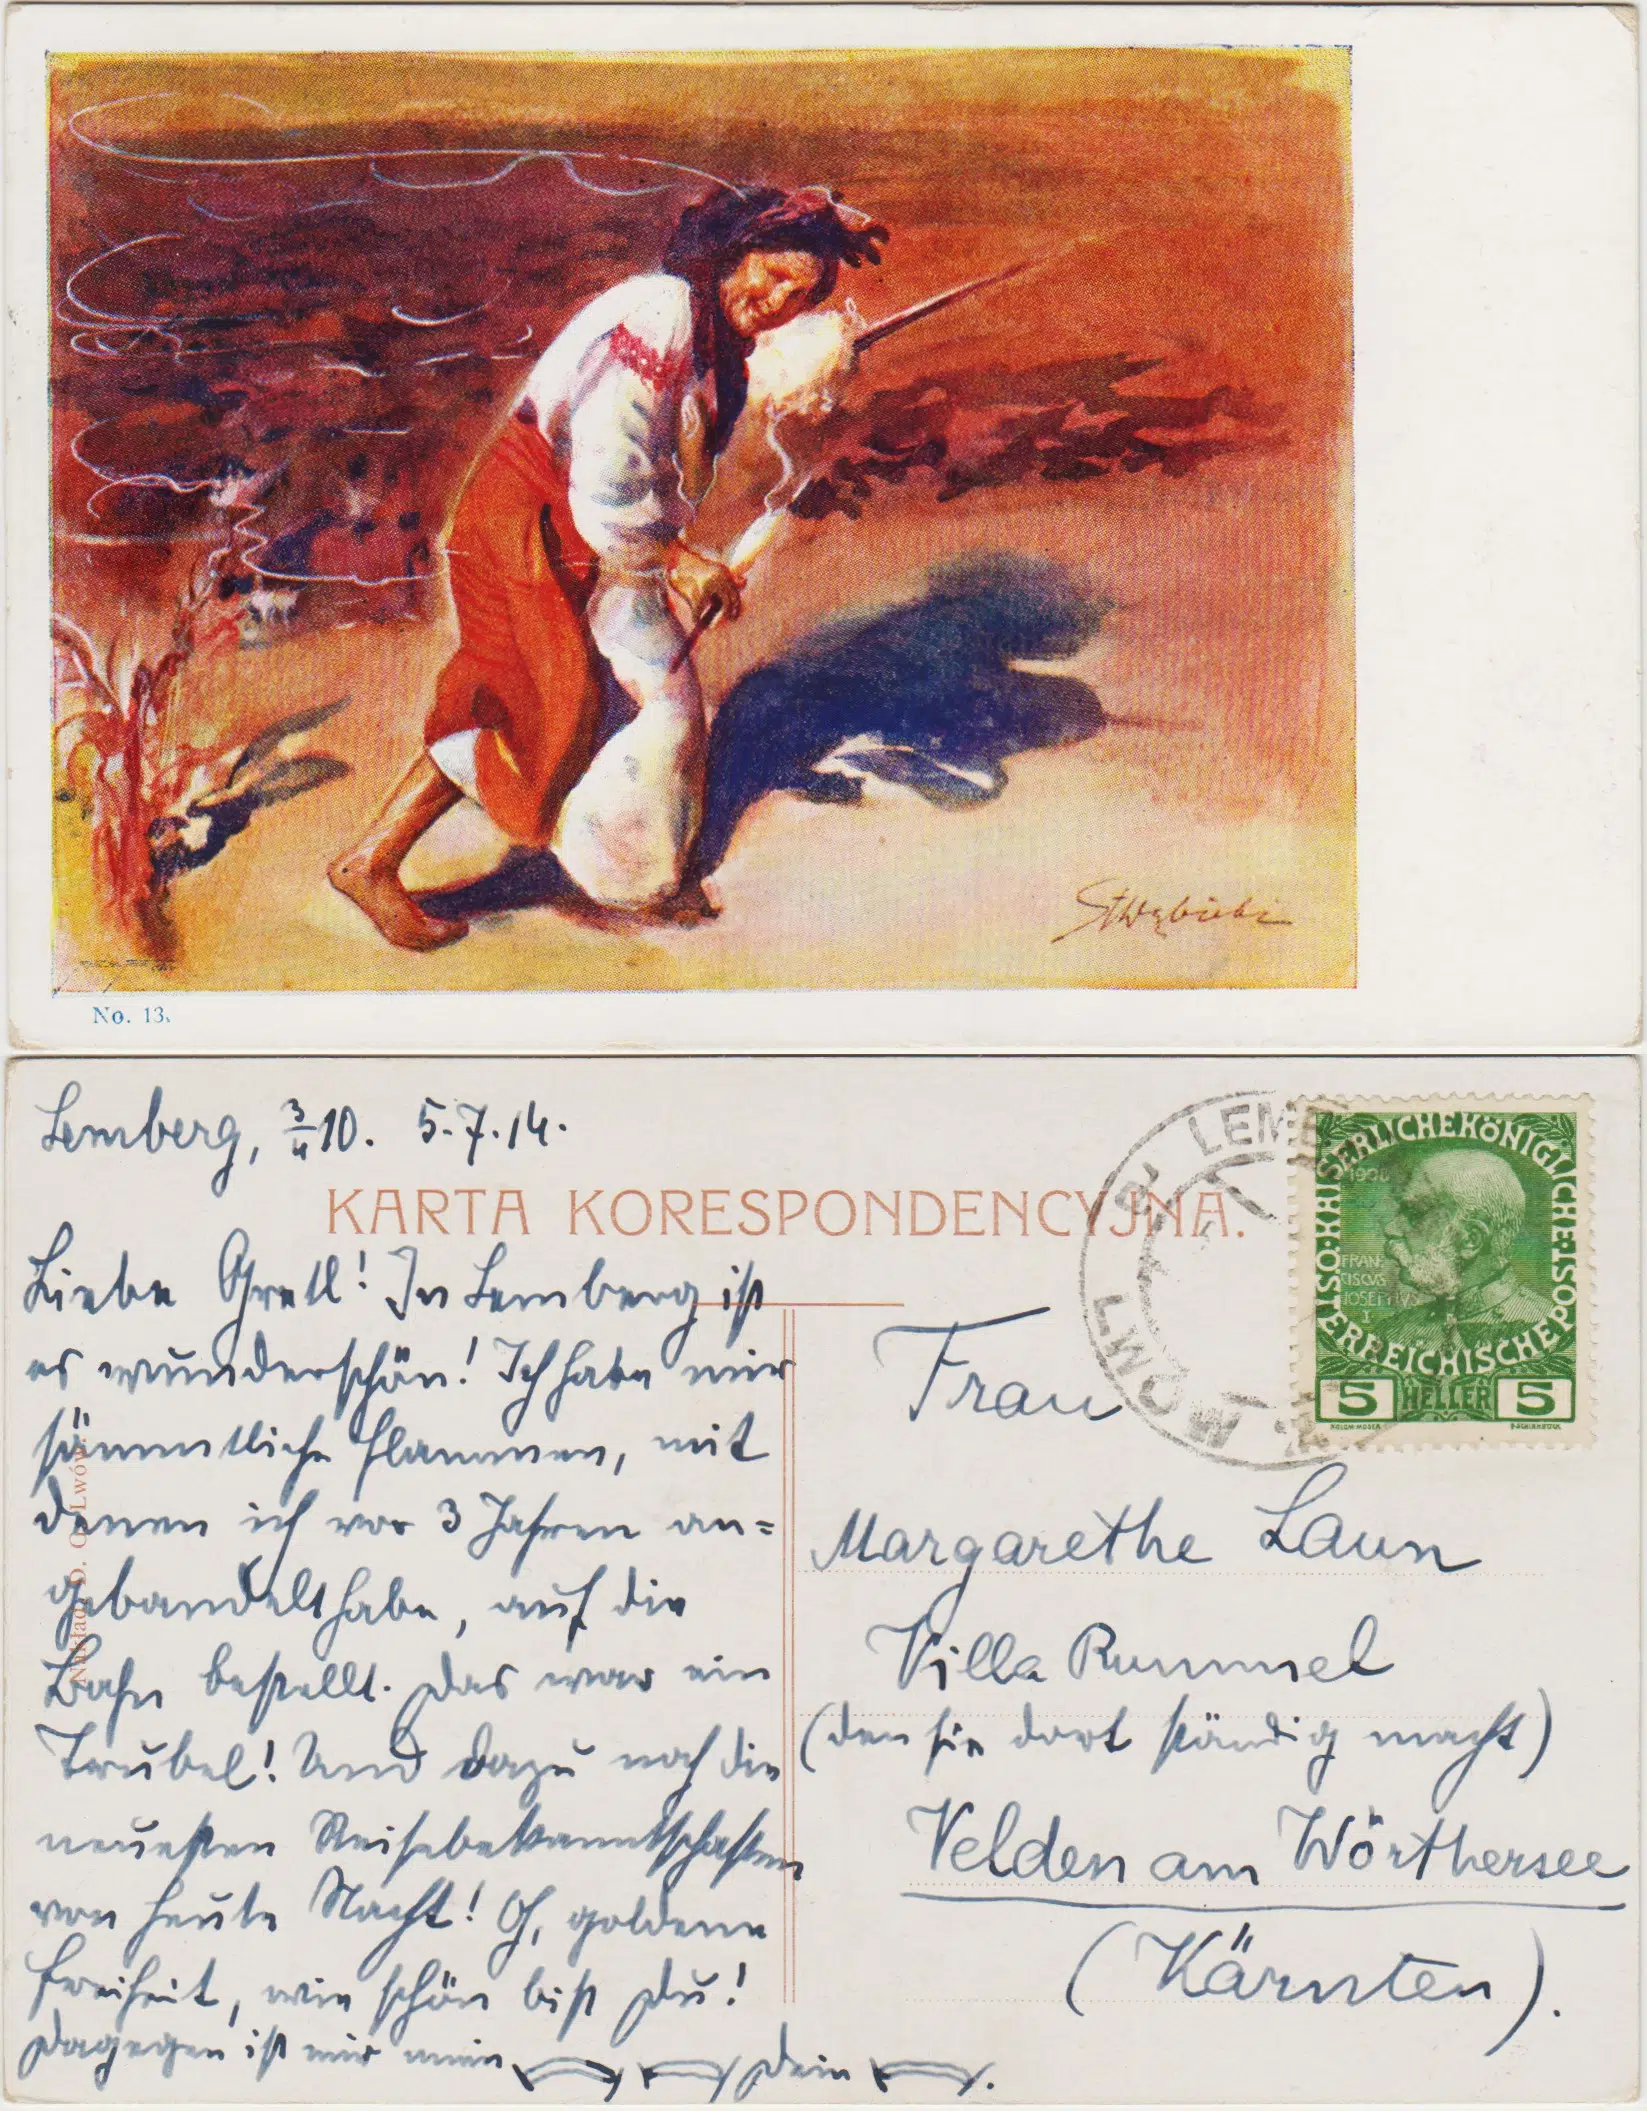 No. 13.
Lemberg, 3/4 10. 5.7.14.
KARTA KORESPONDENCYJNA.
Liebe Gretl! In Lemberg ist
es wunderschön! Ich habe mir
sämmtliche Flammen, mit
denen ich vor 3 Jahren an=
gebandelt habe, auf die
Bahn bestellt. Das war ein
Trubel! Und dazu noch die
neuesten Reisebekanntschaften
von heute Nacht! Oh, goldene
Freiheit, wie schön bist Du!
Dagegen ist mir mein
Dein
LEMB
KAISERLICHE KÖNIGLICHE
ÖSTERREICHISCHE POST
1908
FRAN
CISCVS
IOSEPHVS
I
5 HELLER 5
KOLOM. MOSER
F. SCHIRNBÖCK
Frau
Margarethe Laun
Villa Rummel
(den sie dort ständig macht)
Velden am Wörthersee
(Kärnten).